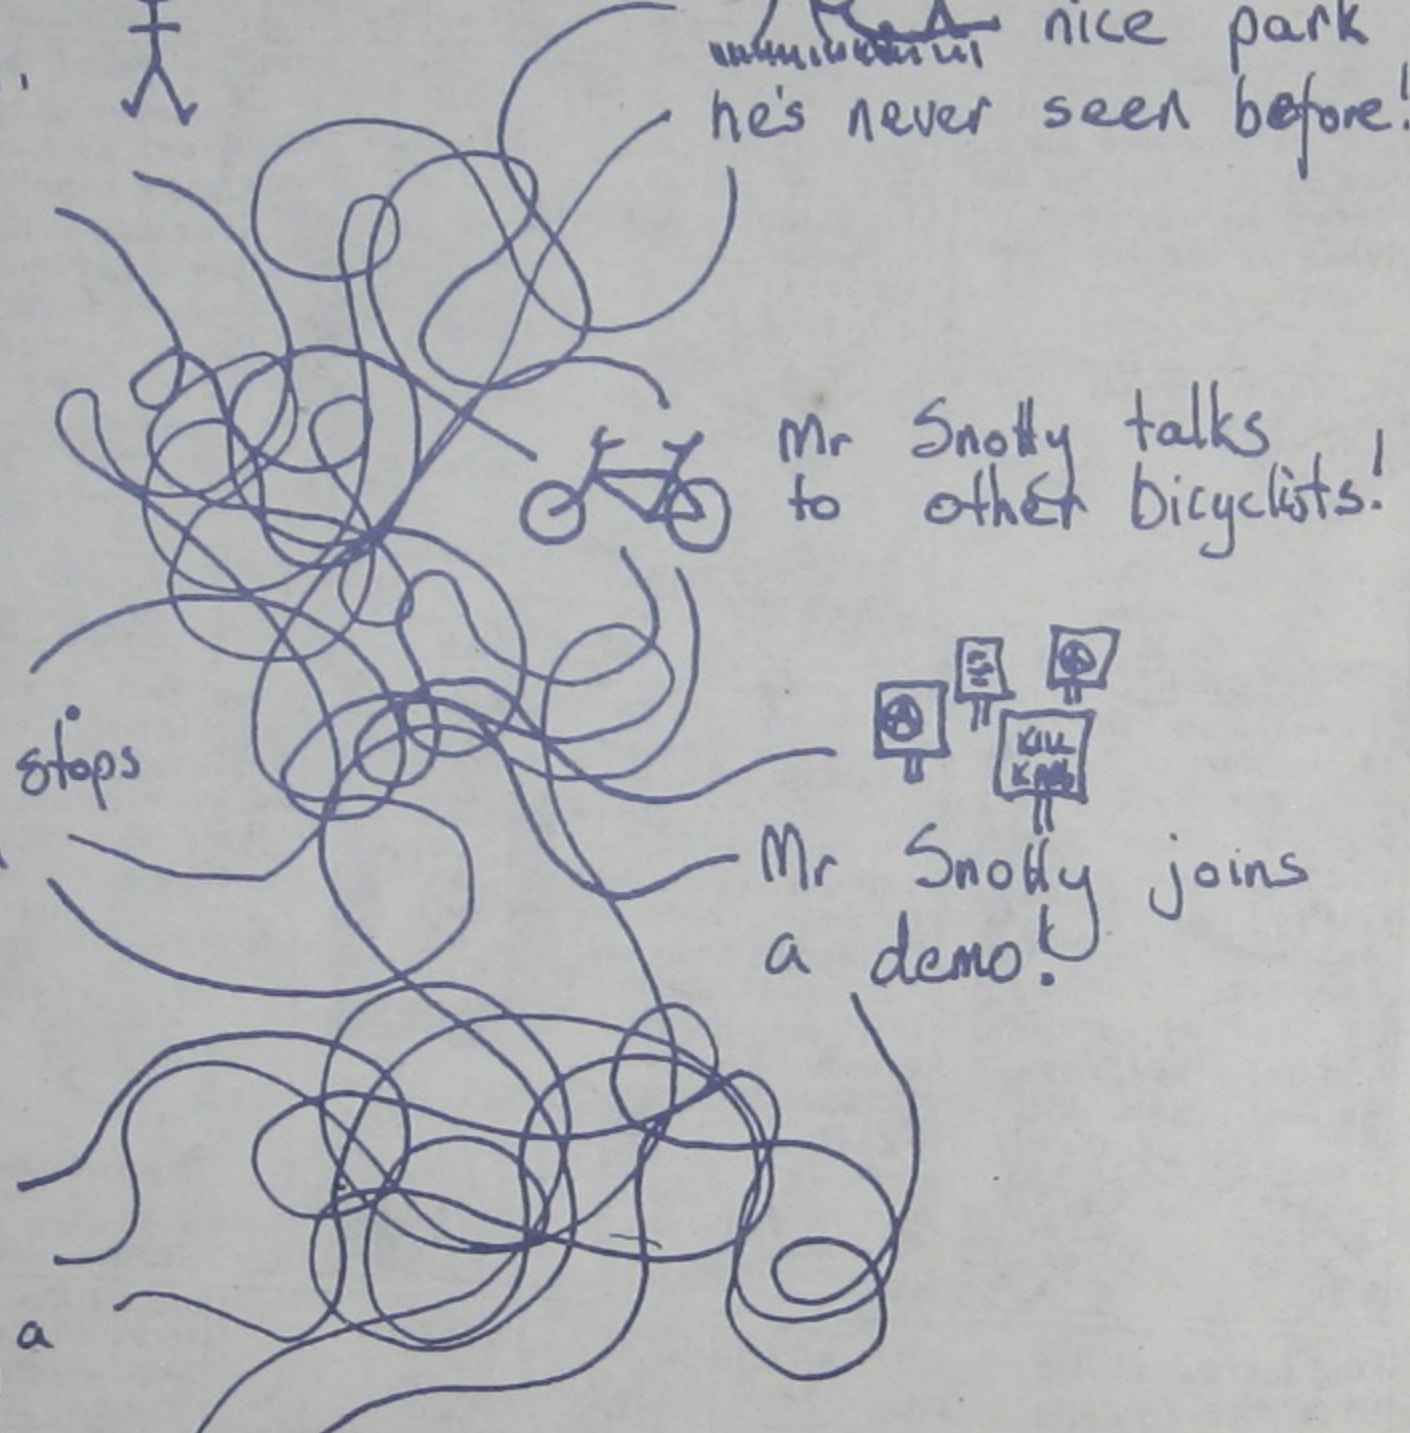 nice park
he's never seen before!
Mr Snotty talks
to other bicyclists!
stops
KILL
Mr Snotty joins
a demo!
a